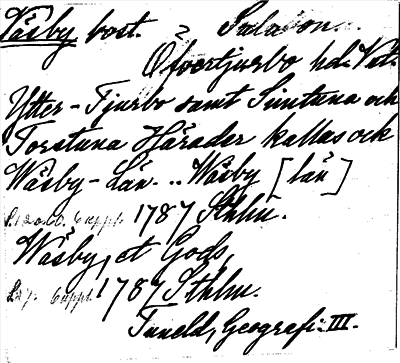 Väsby bost. Sala ln.
Öfvertjurbo hd. Vst.
Ytter-Tjurbo samt Simtuna och
Torstuna Härader kallas ock
Wäsby-Län. .. Wäsby [län]
S. 12 6 uppl. 1787 Sthlm.
Wäsby, et Gods,
S. 27. 6 uppl. 1787 Sthlm.
Tuneld, Geografi. III.